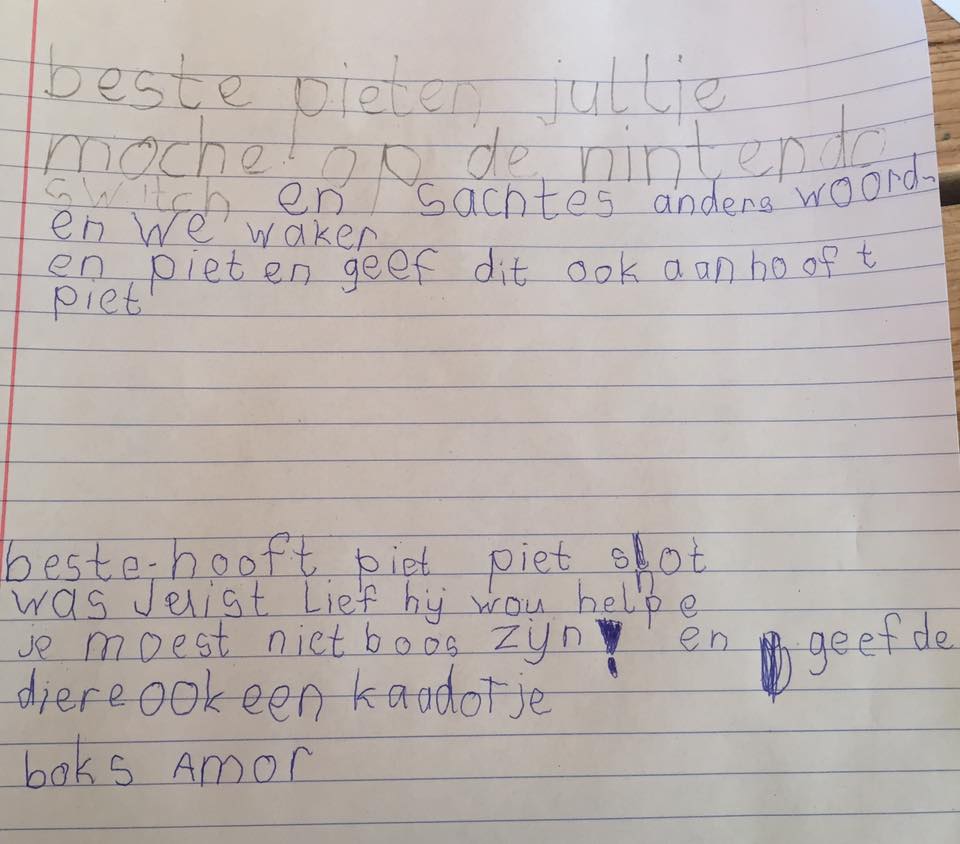 beste pieten jullije
moche! op de nintendo
switch en sachtes anders woord-
en we waker
en pieten geef dit ook aan hooft
piet
beste-hooft piet piet slot
was Jeuist Lief hij wou helpe
je moest niet boos zijn! en geef de
diere ook een kaadotje
boks AMOr